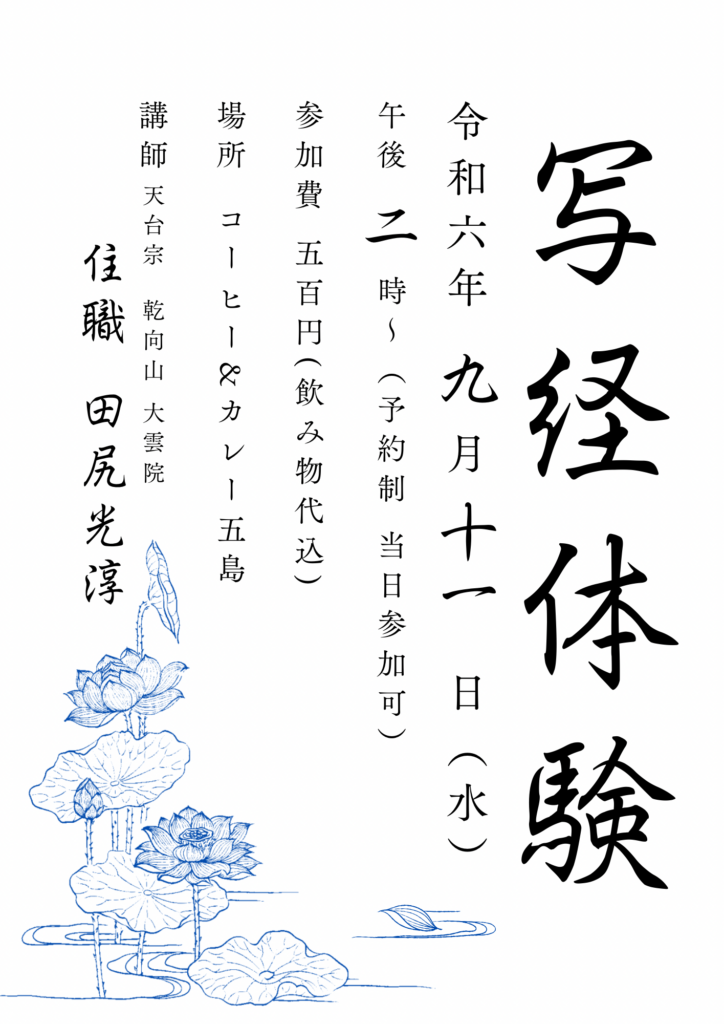 写経体験
令和六年 九月十一 日(水)
午後 二 時～(予約制 当日参加可)
参加費 五百円(飲み物代込)
場所 コーヒー&カレー五島
講師 天台宗 乾向山 大雲院
住職 田尻光淳